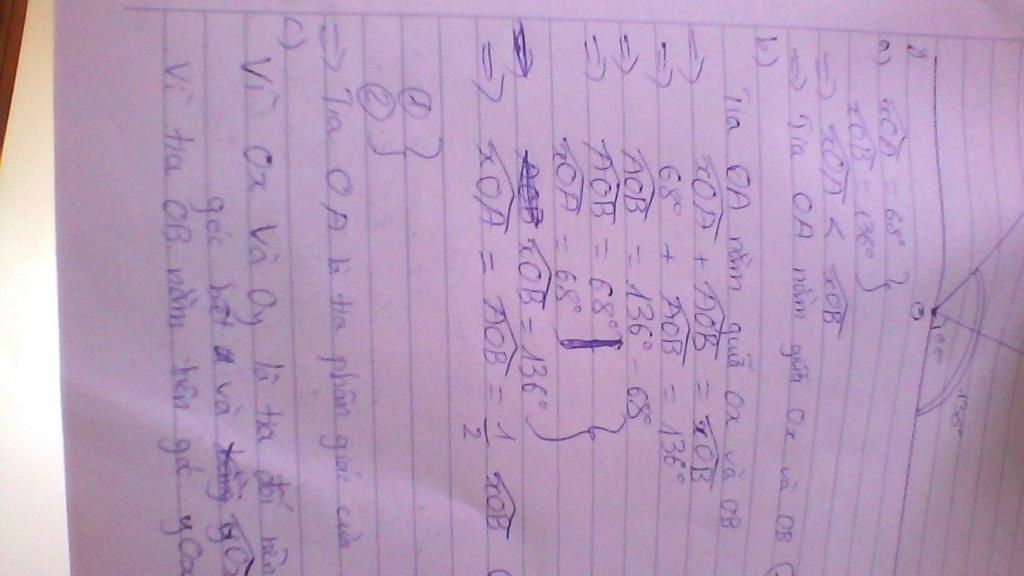 y
O
68°
136°
a) xOA = 68° }
xOB = 136°
=> xOA < xOB
=> Tia OA nằm giữa Ox và OB (
b)
Tia OA nằm giữa Ox và OB
=> xOA + AOB = xOB
=> 68° + AOB = 136°
=> AOB = 136° - 68°
=> AOB = 68°
xOA = 68°
xOB = 136°
=> xOA = AOB = 1/2 xOB (
①
② }
=> Tia OA là tia phân giác của
c)
Vì Ox và Oy là tia đối nên
góc bẹt và
Vì tia OB nằm bên